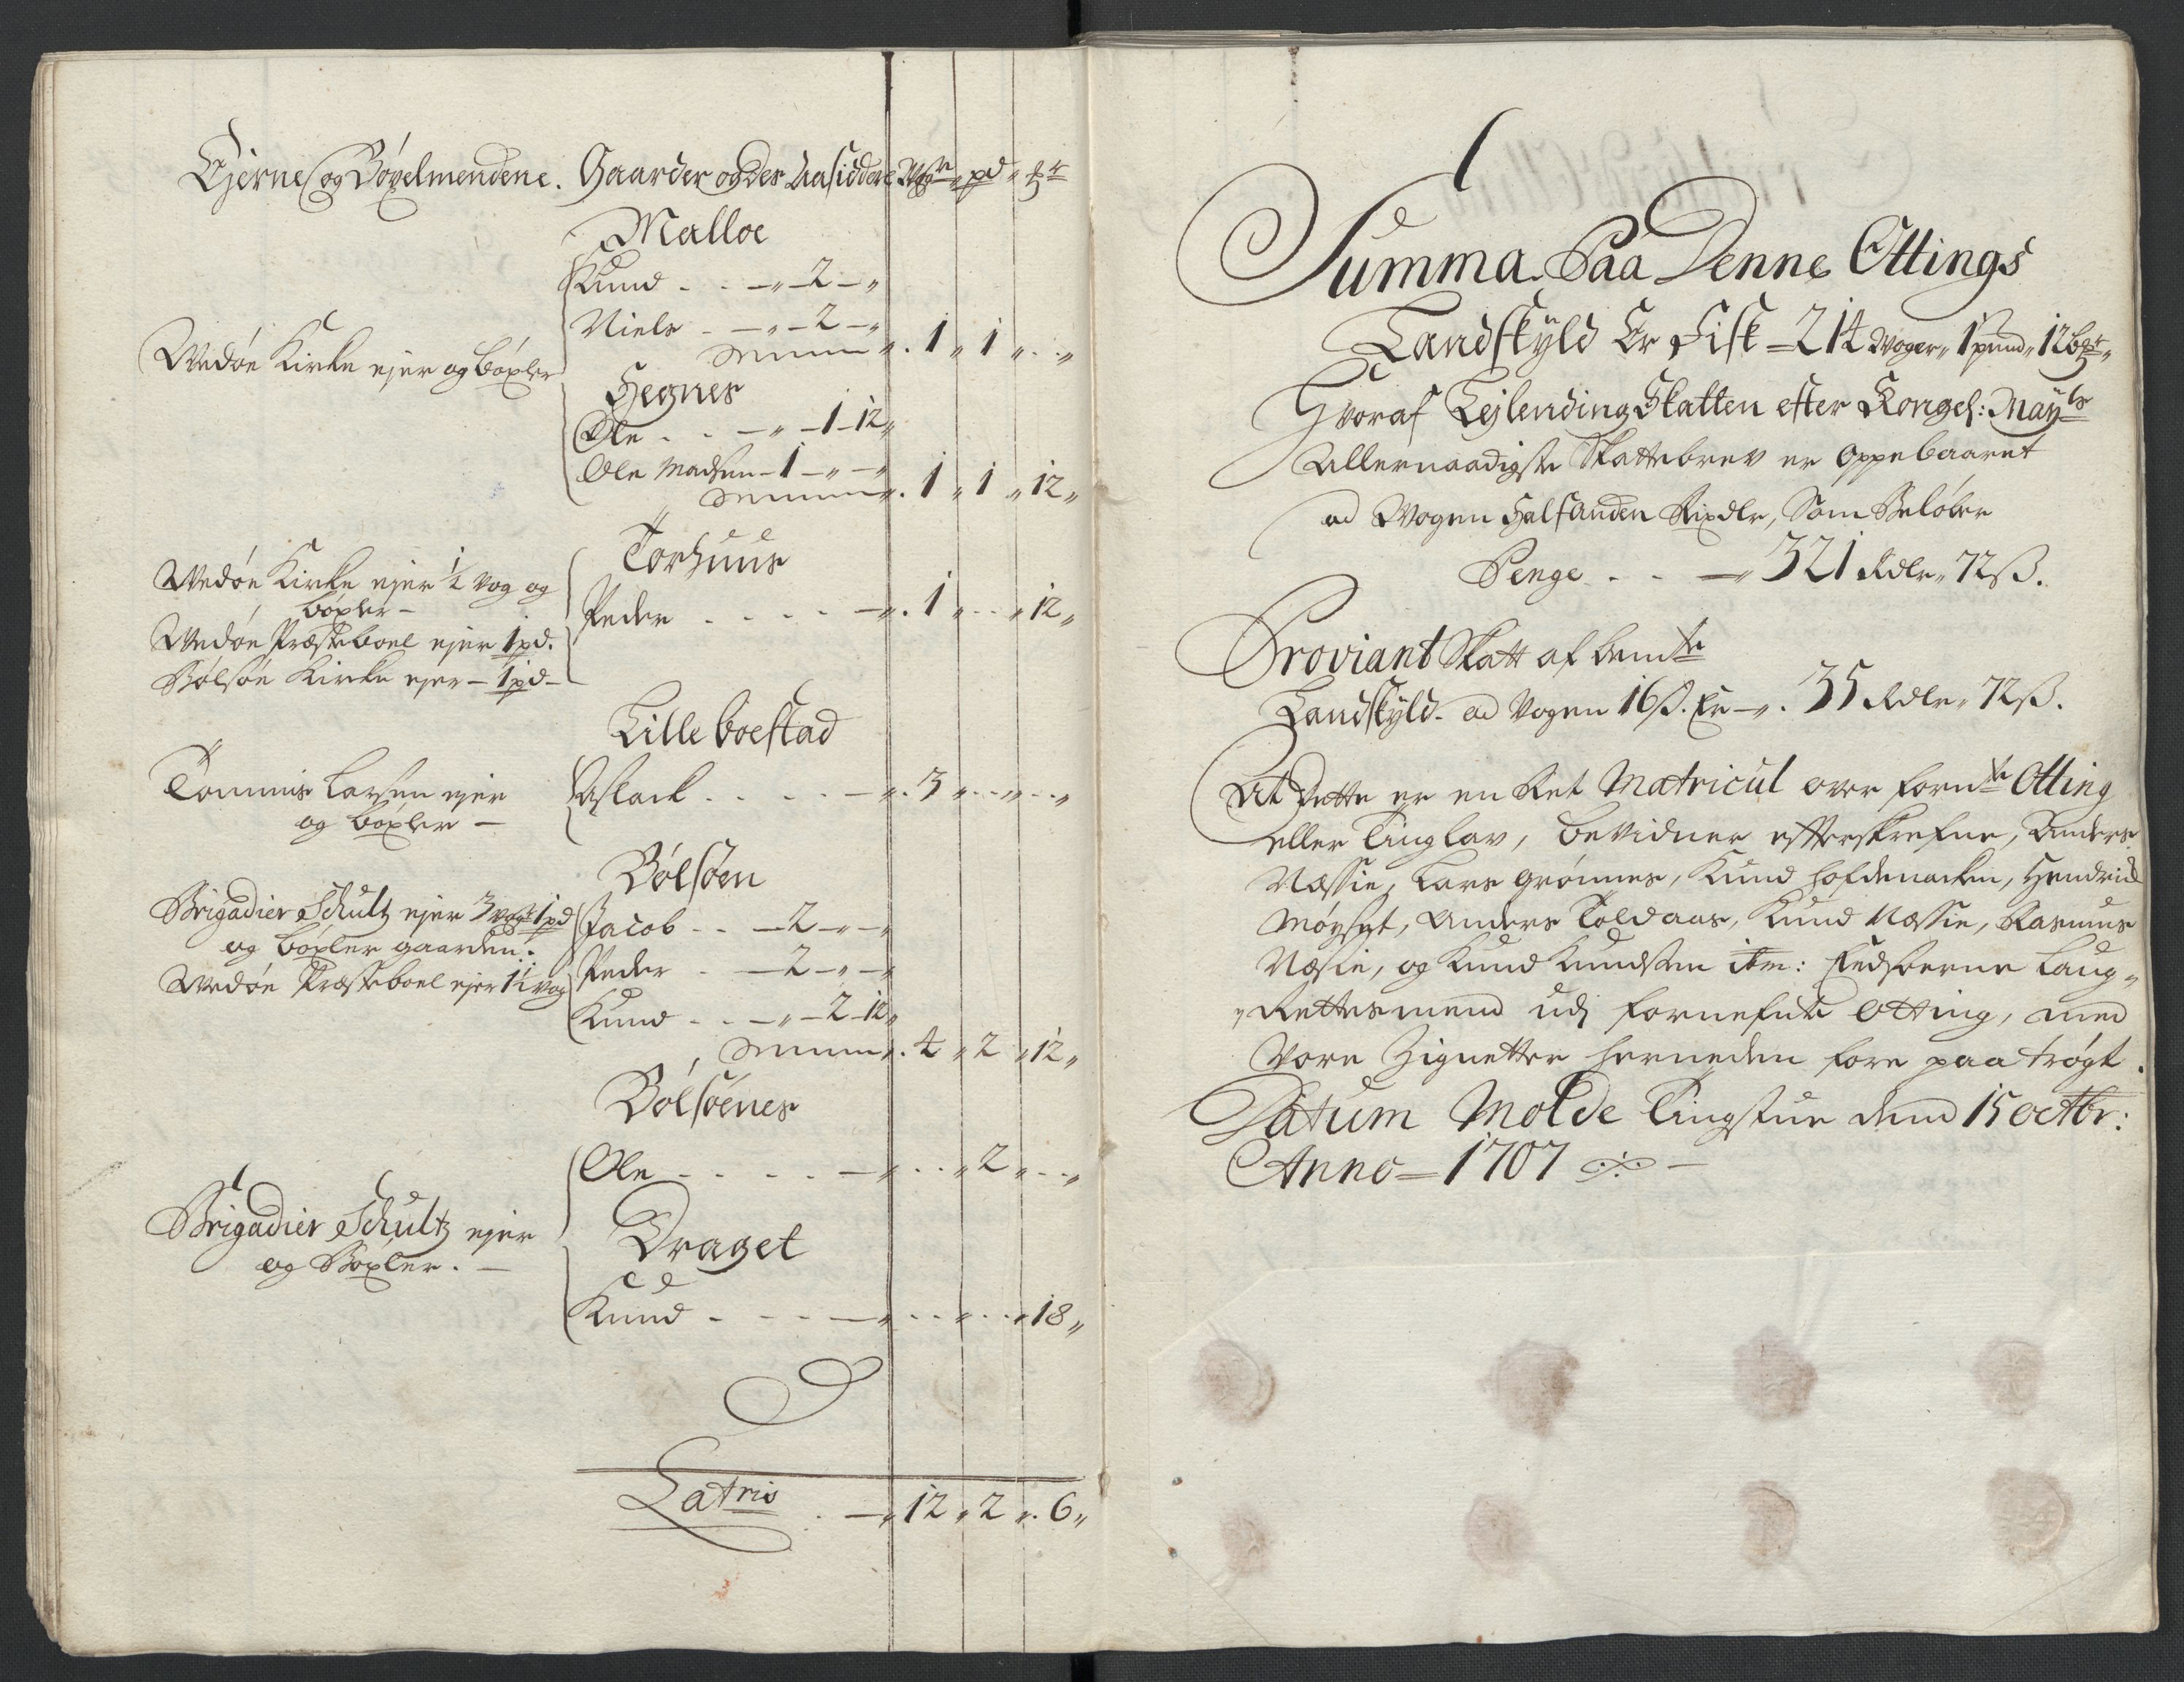 Ejerne og Böxelmendene. Gaarder og des Aasiddere Wog r pd mk
Malloe
Knud . . — " — 2 — "
Niels . — " — 2 — "
Summa . 1 " 1 " . . "
Wedöe Kirke ejer og böxler
Hegnes
Ole . . — " — 1 — 12 "
Ole Madsen — 1 — " — "
Summa . 1 " 1 " 12 "
Torhuus
Wedöe Kirke ejer ½ vog og
böxler —
Peder . . . . — " . 1 " . . " 12 "
Wedöe Præsteboel ejer 1 pd.
Bölsöe Kirke ejer — 1 pd —
Lille boestad
Tommis Larsen ejer
og böxler —
Aslack . . . . — " . 3 " . . " . . "
Bölsöen
Brigadier Schultz ejer 3 vog 1 pd
og böxler gaarden.
Jacob . . — 2 — " — "
Wedöe Præsteboel ejer 1½ vog
Peder . — 2 — " — "
Knud . . — " — 2 — 12 "
Summa . 4 " 2 " 12 "
Bölsöenes
Ole . . . . — " . . " 2 " . . "
Brigadier Schultz ejer
og Böxler. —
Draget
Knud . . . . — " . . " . . " 18 "
Latris . — " 12 " 2 " . 6 "
Summa Paa Denne Ottings
Landskyld Er Fisk = 214 Woger " 1 pund " 12 mk "
Hvoraf Lejlending Skatten efter Kongel: Mayts
Allernaadigste Skattebrev er Oppebaaret
ad Wogen Halfanden Rixdlr, Som Beløber
Penge . . — " 321 Rdlr " 72 ß.
Proviant Skatt af bemte
Landskyld ad Vogen 16 ß. Er — " . 35 Rdlr " 72 ß.
At Dette er en Ret Matricul over fornte Otting
eller Tinglav, bevidner effterskrefne, Anders
Næssie, Lars Grönnes, Knud Hofdenacken, Hendrich
Möyset, Anders Toldaas, Knud Næssie, Rasmus
Næsie, og Knud Knudsen itm: Eedsorne Laug-
Rettesmend udj fornefnte Otting, med
Vore Zignetter herneden fore paa trögt.
Datum Molde Tingstue dend 15 octbr:
Anno = 1707